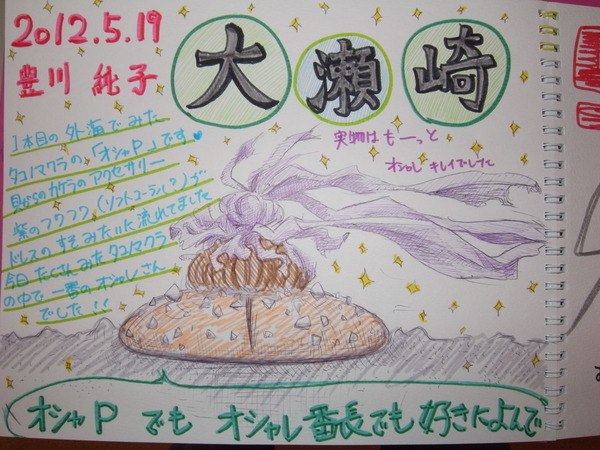 2012.5.19
豊川 純子
大瀬崎
1本目の外海でみた
タコノマクラの「オシャP」です♥
貝がらのカケラのアクセサリー
紫のフワフワ(ソフトコーラル?)が
ドレスのすそみたいに流れてました
今日たくさんみたタコノマクラ
の中で一番のオシャレさん
でした!!
実物はもーっと
オシャレ キレイでした
オシャP でも オシャレ番長でも好きによんで